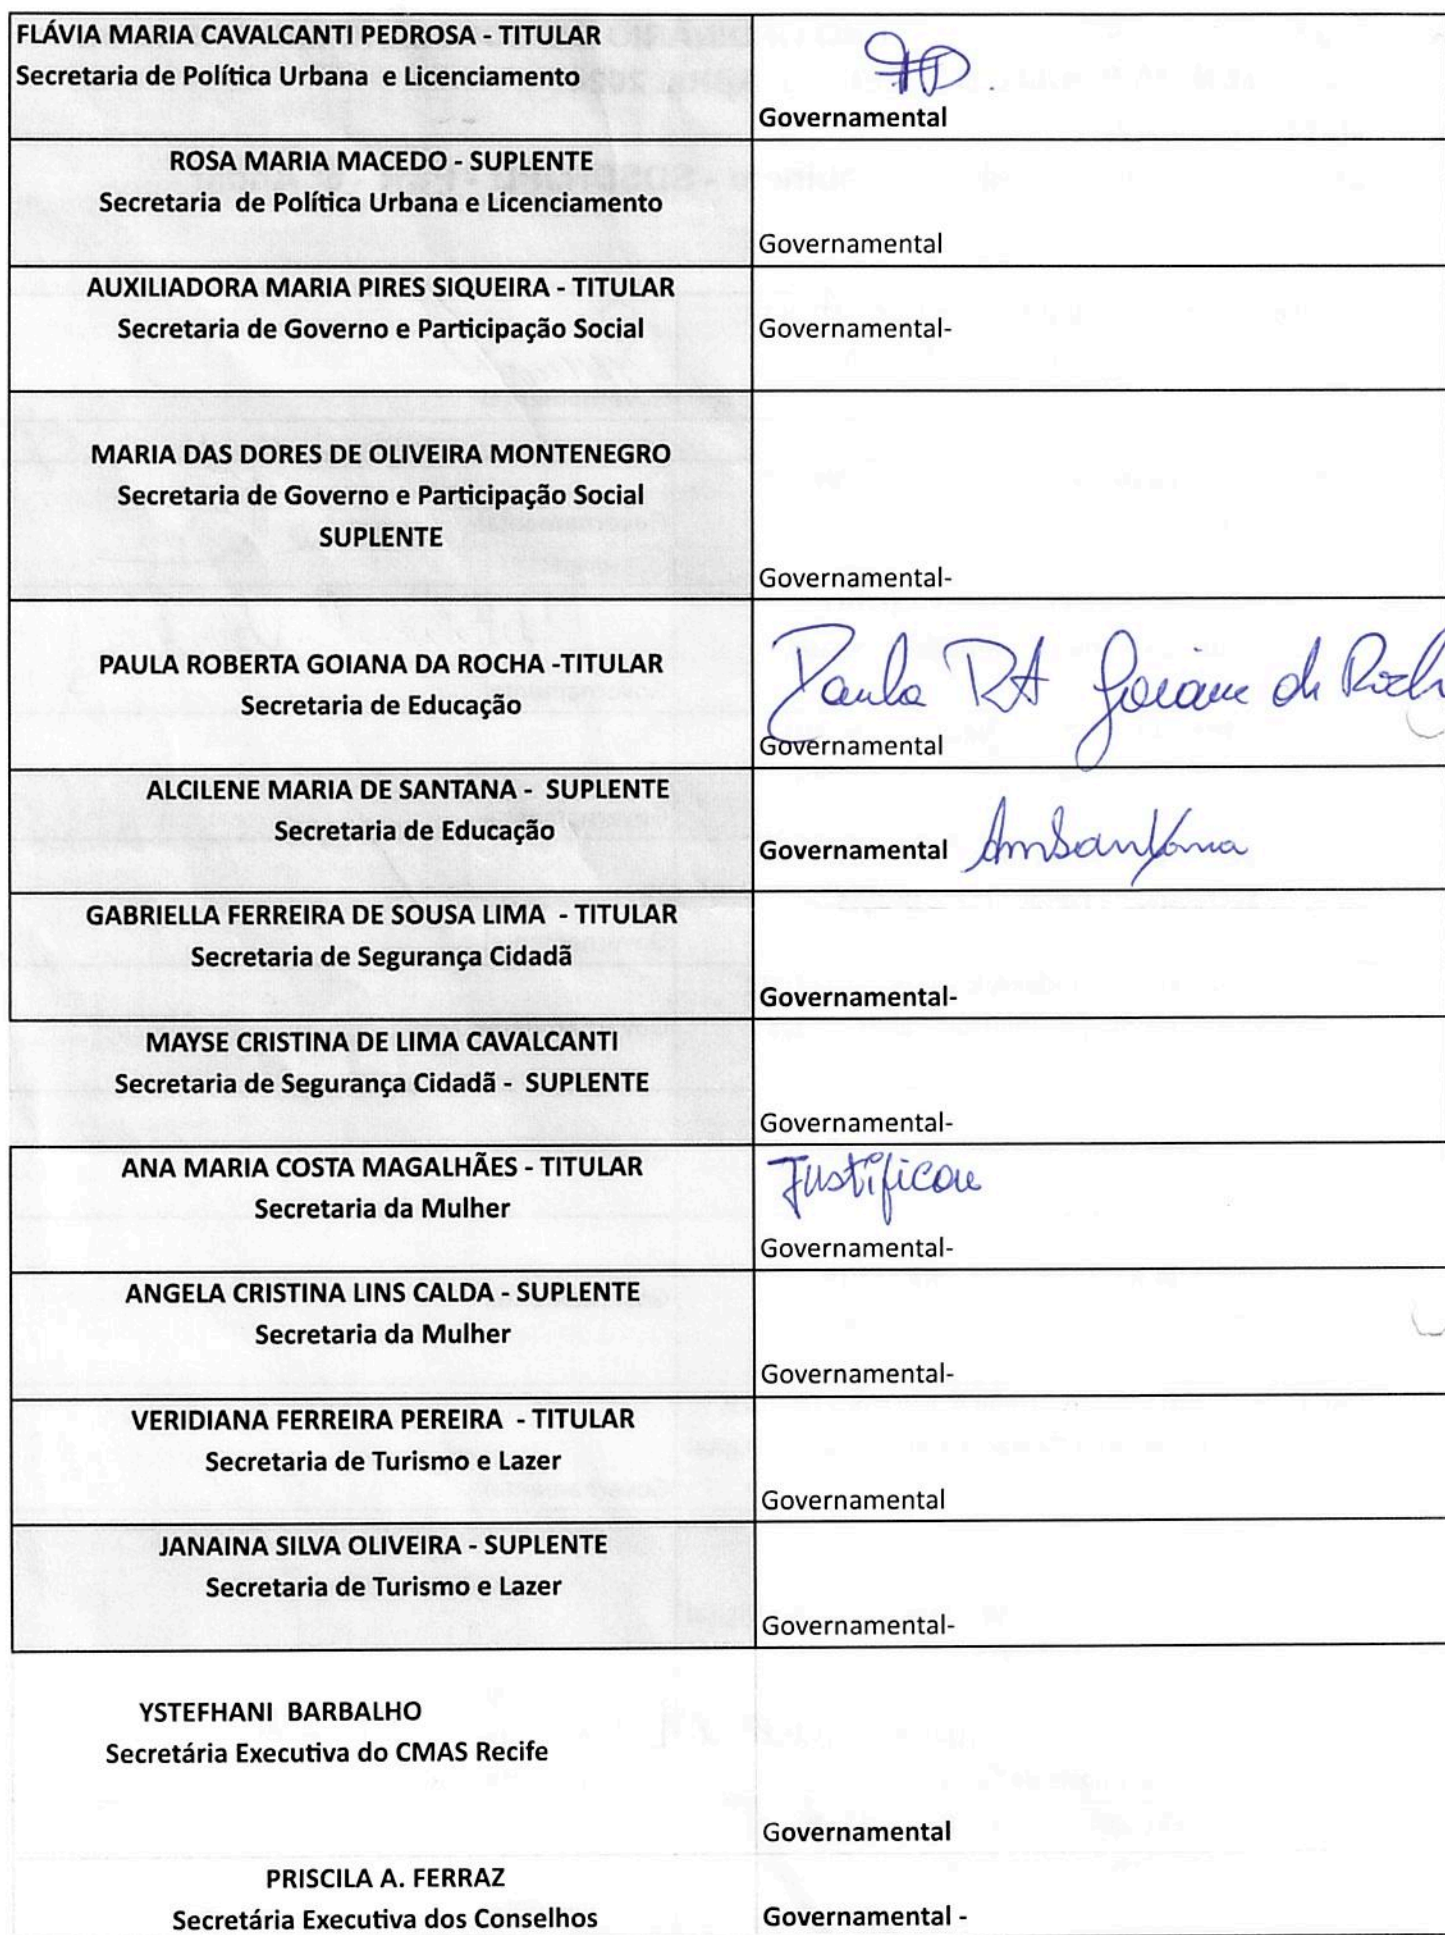 FLÁVIA MARIA CAVALCANTI PEDROSA - TITULAR
Secretaria de Política Urbana e Licenciamento
Governamental
ROSA MARIA MACEDO - SUPLENTE
Secretaria de Política Urbana e Licenciamento
Governamental
AUXILIADORA MARIA PIRES SIQUEIRA - TITULAR
Secretaria de Governo e Participação Social
Governamental-
MARIA DAS DORES DE OLIVEIRA MONTENEGRO
Secretaria de Governo e Participação Social
SUPLENTE
Governamental-
PAULA ROBERTA GOIANA DA ROCHA -TITULAR
Secretaria de Educação
Paula
Governamental
ALCILENE MARIA DE SANTANA - SUPLENTE
Secretaria de Educação
Governamental AmSantana
GABRIELLA FERREIRA DE SOUSA LIMA - TITULAR
Secretaria de Segurança Cidadã
Governamental-
MAYSE CRISTINA DE LIMA CAVALCANTI
Secretaria de Segurança Cidadã - SUPLENTE
Governamental-
ANA MARIA COSTA MAGALHÃES - TITULAR
Secretaria da Mulher
Justificou
Governamental-
ANGELA CRISTINA LINS CALDA - SUPLENTE
Secretaria da Mulher
Governamental-
VERIDIANA FERREIRA PEREIRA - TITULAR
Secretaria de Turismo e Lazer
Governamental
JANAINA SILVA OLIVEIRA - SUPLENTE
Secretaria de Turismo e Lazer
Governamental-
YSTEFHANI BARBALHO
Secretária Executiva do CMAS Recife
Governamental
PRISCILA A. FERRAZ
Secretária Executiva dos Conselhos
Governamental -